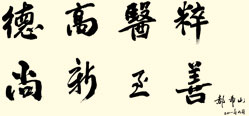 粹醫高德
善至新尚
郝希山